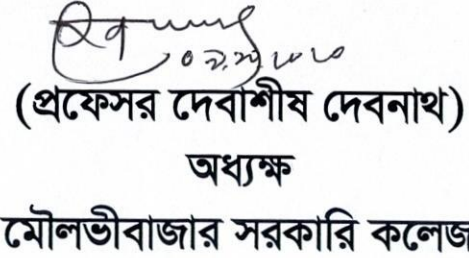 (প্রফেসর দেবাশীষ দেবনাথ)
অধ্যক্ষ
মৌলভীবাজার সরকারি কলেজ